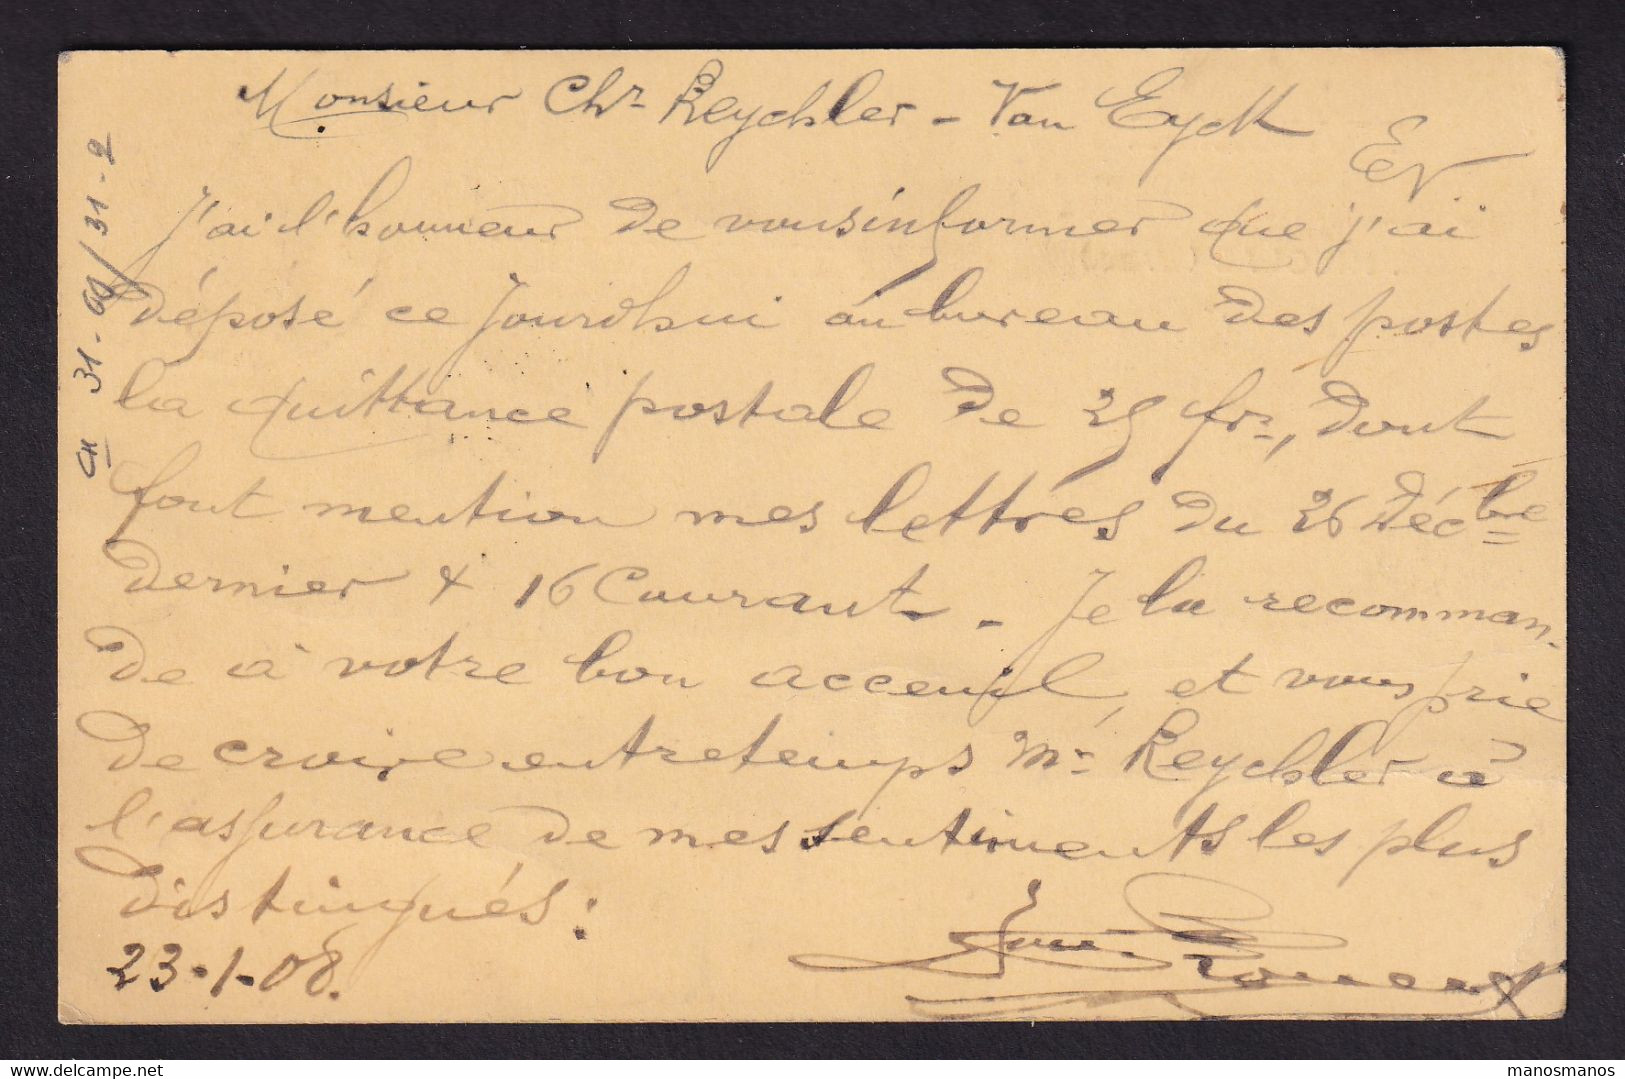 Monsieur Chr Reychler - Van Eyck
EV
J'ai l'honneur de vous informer que j'ai
déposé ce jourd'hui au bureau des postes
la quittance postale de 25 frs, dont
font mention mes lettres du 26 Décbre
dernier & 16 Courant. - Je la recomman-
de à votre bon acceuil, et vous prie
de croire entretemps Mr Reychler à
l'assurance de mes sentiments les plus
distingués:
23-1-08.
31-2
delcampe.net
manosmanos